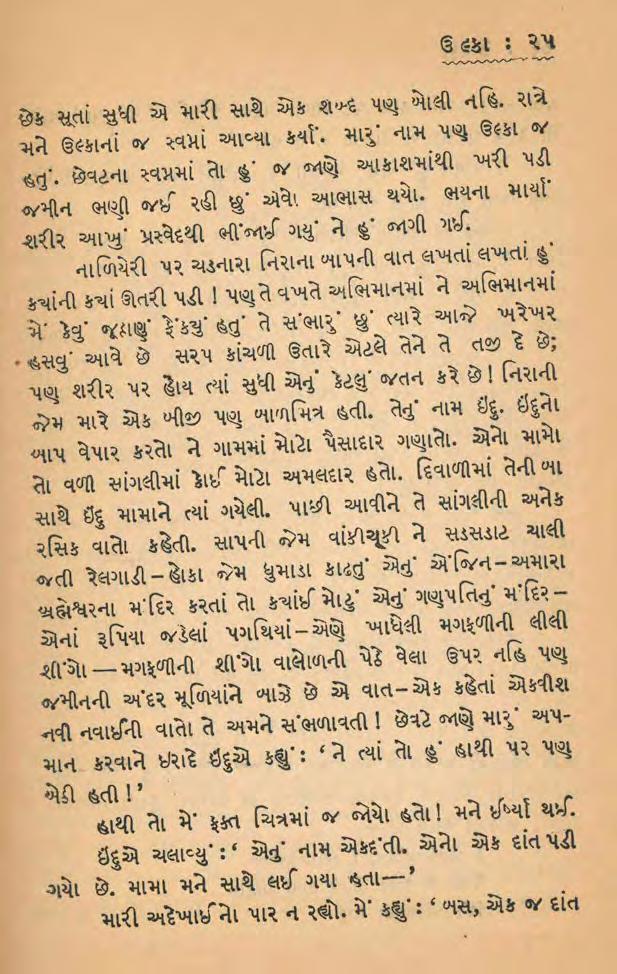 ઉલ્કા : ૨૫
છેક સૂતાં સુધી એ મારી સાથે એક શબ્દ પણ બોલી નહિ. રાત્રે
મને ઉલ્કાનાં જ સ્વપ્નાં આવ્યા કર્યાં. મારું નામ પણ ઉલ્કા જ
હતું. છેવટના સ્વપ્નમાં તો હું જ જાણે આકાશમાંથી ખરી પડી
જમીન ભણી જઈ રહી છું એવો આભાસ થયો. ભયના માર્યાં
શરીર આખું પ્રસ્વેદથી ભીંજાઈ ગયું ને હું જાગી ગઈ.
નાળિયેરી પર ચડનારા નિરાના બાપની વાત લખતાં લખતાં હું
કયાંની કયાં ઊતરી પડી ! પણ તે વખતે અભિમાનમાં ને અભિમાનમાં
મેં કેવું જૂઠાણું ફેંકયું હતું તે સંભારું છું ત્યારે આજે ખરેખર
હસવું આવે છે સરપ કાંચળી ઉતારે એટલે તેને તે તજી દે છે;
પણ શરીર પર હોય ત્યાં સુધી એનું કેટલું જતન કરે છે ! નિરાની
જેમ મારે એક બીજી પણ બાળમિત્ર હતી. તેનું નામ ઇંદુ. ઇંદુનો
બાપ વેપાર કરતો ને ગામમાં મોટો પૈસાદાર ગણાતો. એનો મામો
તો વળી સાંગલીમાં કોઈ મોટો અમલદાર હતો. દિવાળીમાં તેની બા
સાથે ઇંદુ મામાને ત્યાં ગયેલી. પાછી આવીને તે સાંગલીની અનેક
રસિક વાતો કહેતી. સાપની જેમ વાંકીચૂકી ને સડસડાટ ચાલી
જતી રેલગાડી – હોકા જેમ ધુમાડા કાઢતું એનું એંજિન – અમારા
બ્રહ્મેશ્વરના મંદિર કરતાં તો કયાંઈ મોટું એનું ગણપતિનું મંદિર –
એનાં રૂપિયા જડેલાં પગથિયાં – એણે ખાધેલી મગફળીની લીલી
શીંગો — મગફળીની શીંગો વાલોળની પેઠે વેલા ઉપર નહિ પણ
જમીનની અંદર મૂળિયાંને બાઝે છે એ વાત – એક કહેતાં એકવીશ
નવી નવાઈની વાતો તે અમને સંભળાવતી ! છેવટે જાણે મારું અપ-
માન કરવાને ઇરાદે ઇંદુએ કહ્યું : ‘ ને ત્યાં તો હું હાથી પર પણ
બેઠી હતી ! ’
હાથી તો મેં ફક્ત ચિત્રમાં જ જોયો હતો ! મને ઈર્ષ્યા થઈ.
ઇંદુએ ચલાવ્યું : ‘ એનું નામ એકદંતી. એનો એક દાંત પડી
ગયો છે. મામા મને સાથે લઈ ગયા હતા — ’
મારી અદેખાઈનો પાર ન રહ્યો. મેં કહ્યું : ‘ બસ, એક જ દાંત